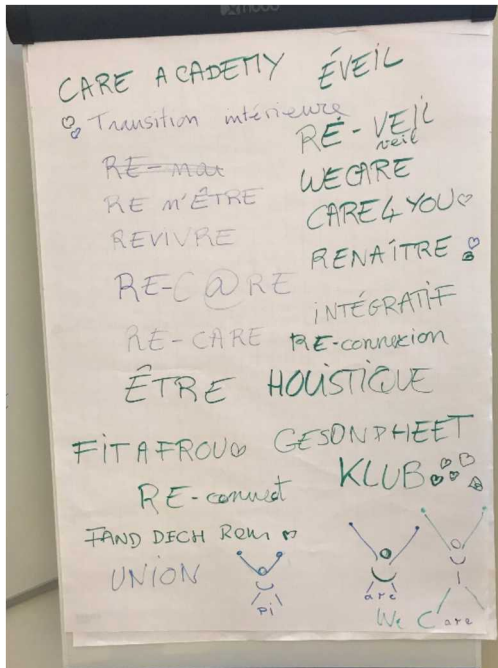 CARE ACADEMY
ÉVEIL
Transition intérieure
RÉ-VEIL
veil
RE-
WECARE
RE M'ÊTRE
CARE4YOU♡
REVIVRE
RENAÎTRE
RE-C@RE
INTÉGRATIF
RE-CARE
RE-connexion
ÊTRE HOLISTIQUE
FIT A FROU♡
GESONDHEET
KLUB
RE-connect
FAND DECH REM
UNION
Pi
are
We Care